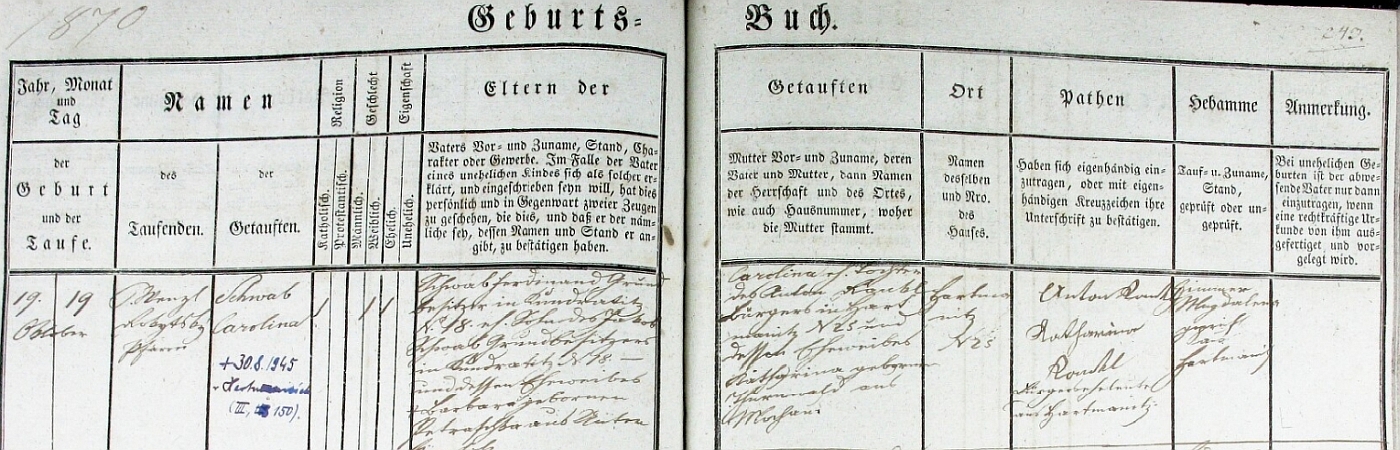 1870
Geburts-
Buch.
243.
Jahr, Monat
und
Tag
Namen
Religion
Geschlecht
Eigenschaft
Eltern der
Getauften
Ort
Pathen
Hebamme
Anmerkung.
der
Geburt
und der
Taufe.
des
Taufenden.
der
Getauften.
Katholisch.
Protestantisch.
Männlich.
Weiblich.
Ehelich.
Unehelich.
Vaters Vor- und Zuname, Stand, Cha-
rakter oder Gewerbe. Im Falle der Vater
eines unehelichen Kindes sich als solcher er-
klärt, und eingeschrieben seyn will, hat dies
persönlich und in Gegenwart zweier Zeugen
zu geschehen, die dies, und daß er der näm-
liche sey, dessen Namen und Stand er an-
gibt, zu bestätigen haben.
Mutter Vor- und Zuname, deren
Vater und Mutter, dann Namen
der Herrschaft und des Ortes,
wie auch Hausnummer, woher
die Mutter stammt.
Namen
desselben
und Nro.
des
Hauses.
Haben sich eigenhändig ein-
zutragen, oder mit eigen-
händigen Kreuzzeichen ihre
Unterschrift zu bestätigen.
Tauf- u. Zuname,
Stand,
geprüft oder un-
geprüft.
Bei unehelichen Ge-
burten ist der abwe-
sende Vater nur dann
einzutragen, wenn
eine rechtkräftige Ur-
kunde von ihm aus-
gefertiget, und vor-
gelegt wird.
19. 19
Oktober
P. Wenzl
Pfarrer
Schwab
Carolina
+ 30.8.1945
(III, 150).
1 1 1
Schwab Ferdinand Grund
besitzer in Kundratitz
N. 78. eh. Sohn des Jakob
Schwab Grundbesitzers
in Kundratitz N 78. —
und dessen Eheweibes
Barbara gebornen
aus
Carolina eh. Tochter
des Anton
Bürgers in Hart
manitz N 25 und
dessen Eheweibes
Katharina geborne
aus
Hartma
nitz
N 25
Anton
Katharina
Bürgerseheleute
aus Hartmanitz
Zimmer
Magdalena
geprüft
aus
Hartmanitz